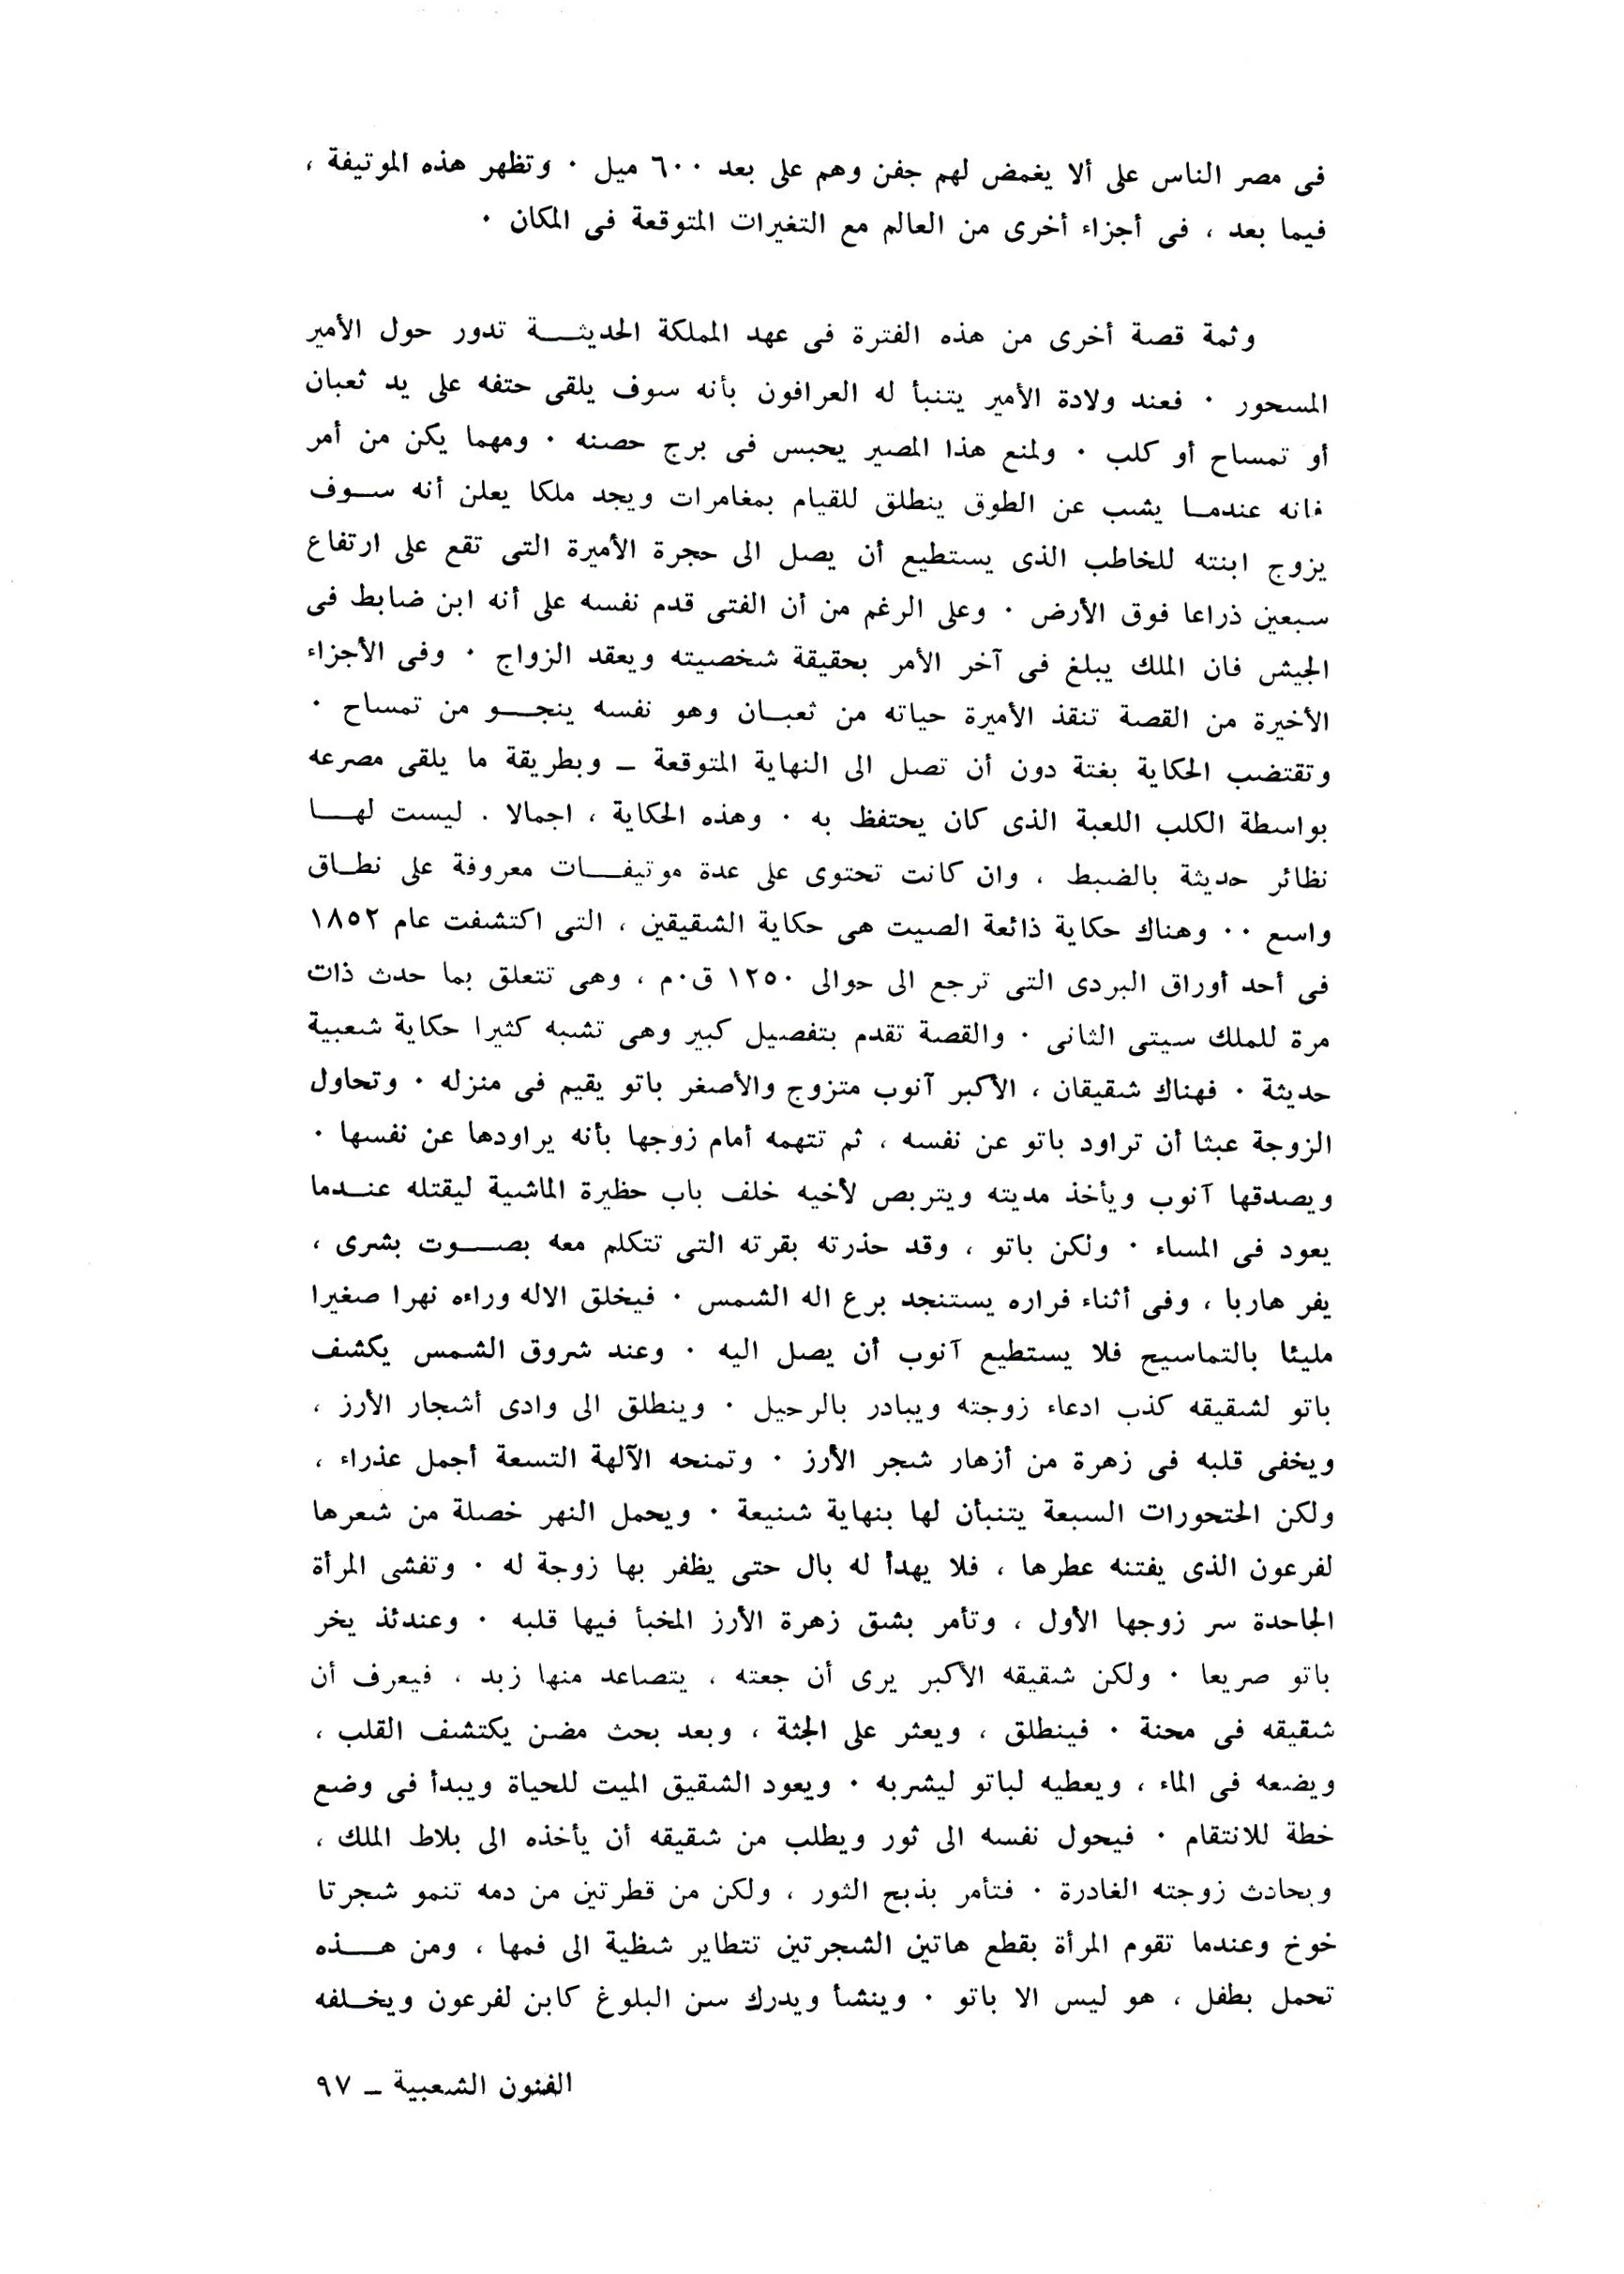 فى مصر الناس على ألا يغمض لهم جفن وهم على بعد ٦٠٠ ميل ٠ وتظهر هذه الموتيفة ،
فيما بعد ، فى أجزاء أخرى من العالم مع التغيرات المتوقعة فى المكان ٠
وثمة قصة أخرى من هذه الفترة فى عهد المملكة الحديثــــة تدور حول الأمير
المسحور ٠ فعند ولادة الأمير يتنبأ له العرافون بأنه سوف يلقى حتفه على يد ثعبان
أو تمساح أو كلب ٠ ولمنع هذا المصير يحبس فى برج حصنه ٠ ومهما يكن من أمر
فانه عندمــا يشب عن الطوق ينطلق للقيام بمغامرات ويجد ملكا يعلن أنه ســوف
يزوج ابنته للخاطب الذى يستطيع أن يصل الى حجرة الأميرة التى تقع على ارتفاع
سبعين ذراعا فوق الأرض ٠ وعلى الرغم من أن الفتى قدم نفسه على أنه ابن ضابط فى
الجيش فان الملك يبلغ فى آخر الأمر بحقيقة شخصيته ويعقد الزواج ٠ وفى الأجزاء
الأخيرة من القصة تنقذ الأميرة حياته من ثعبــان وهو نفسه ينجـــو من تمساح ٠
وتقتضب الحكاية بغتة دون أن تصل الى النهاية المتوقعة ـ وبطريقة ما يلقى مصرعه
بواسطة الكلب اللعبة الذى كان يحتفظ به ٠ وهذه الحكاية ، اجمالا . ليست لهــا
نظائر حديثة بالضبط ، وان كانت تحتوى على عدة موتيفـــات معروفة على نطــاق
واسع ٠٠ وهناك حكاية ذائعة الصيت هى حكاية الشقيقين ، التى اكتشفت عام ١٨٥٢
فى أحد أوراق البردى التى ترجع الى حوالى ١٢٥٠ ق٠م ، وهى تتعلق بما حدث ذات
مرة للملك سيتى الثانى ٠ والقصة تقدم بتفصيل كبير وهى تشبه كثيرا حكاية شعبية
حديثة ٠ فهناك شقيقان ، الأكبر آنوب متزوج والأصغر باتو يقيم فى منزله ٠ وتحاول
الزوجة عبثا أن تراود باتو عن نفسه ، ثم تتهمه أمام زوجها بأنه يراودها عن نفسها ٠
ويصدقها آنوب ويأخذ مديته ويتربص لأخيه خلف باب حظيرة الماشية ليقتله عنــدما
يعود فى المساء ٠ ولكن باتو ، وقد حذرته بقرته التى تتكلم معه بصـــوت بشرى ،
يفر هاربا ، وفى أثناء فراره يستنجد برع اله الشمس ٠ فيخلق الاله وراءه نهرا صغيرا
مليئا بالتماسيح فلا يستطيع آنوب أن يصل اليه ٠ وعند شروق الشمس يكشف
باتو لشقيقه كذب ادعاء زوجته ويبادر بالرحيل ٠ وينطلق الى وادى أشجار الأرز ،
ويخفى قلبه فى زهرة من أزهار شجر الأرز ٠ وتمنحه الآلهة التسعة أجمل عذراء ،
ولكن الحتحورات السبعة يتنبأن لها بنهاية شنيعة ٠ ويحمل النهر خصلة من شعرها
لفرعون الذى يفتنه عطرها ، فلا يهدأ له بال حتى يظفر بها زوجة له ٠ وتفشى المرأة
الجاحدة سر زوجها الأول ، وتأمر بشق زهرة الأرز المخبأ فيها قلبه ٠ وعندئذ يخر
باتو صريعا ٠ ولكن شقيقه الأكبر يرى أن جعته ، يتصاعد منها زبد ، فيعرف أن
شقيقه فى محنة ٠ فينطلق ، ويعثر على الجثة ، وبعد بحث مضن يكتشف القلب ،
ويضعه فى الماء ، ويعطيه لباتو ليشربه ٠ ويعود الشقيق الميت للحياة ويبدأ فى وضع
خطة للانتقام ٠ فيحول نفسه الى ثور ويطلب من شقيقه أن يأخذه الى بلاط الملك ،
وبحادث زوجته الغادرة ٠ فتأمر بذبح الثور ، ولكن من قطرتين من دمه تنمو شجرتا
خوخ وعندما تقوم المرأة بقطع هاتين الشجرتين تتطاير شظية الى فمها ، ومن هـــذه
تحمل بطفل ، هو ليس الا باتو ٠ وينشأ ويدرك سن البلوغ كابن لفرعون ويخــلفه
الفنون الشعبية ـ ٩٧